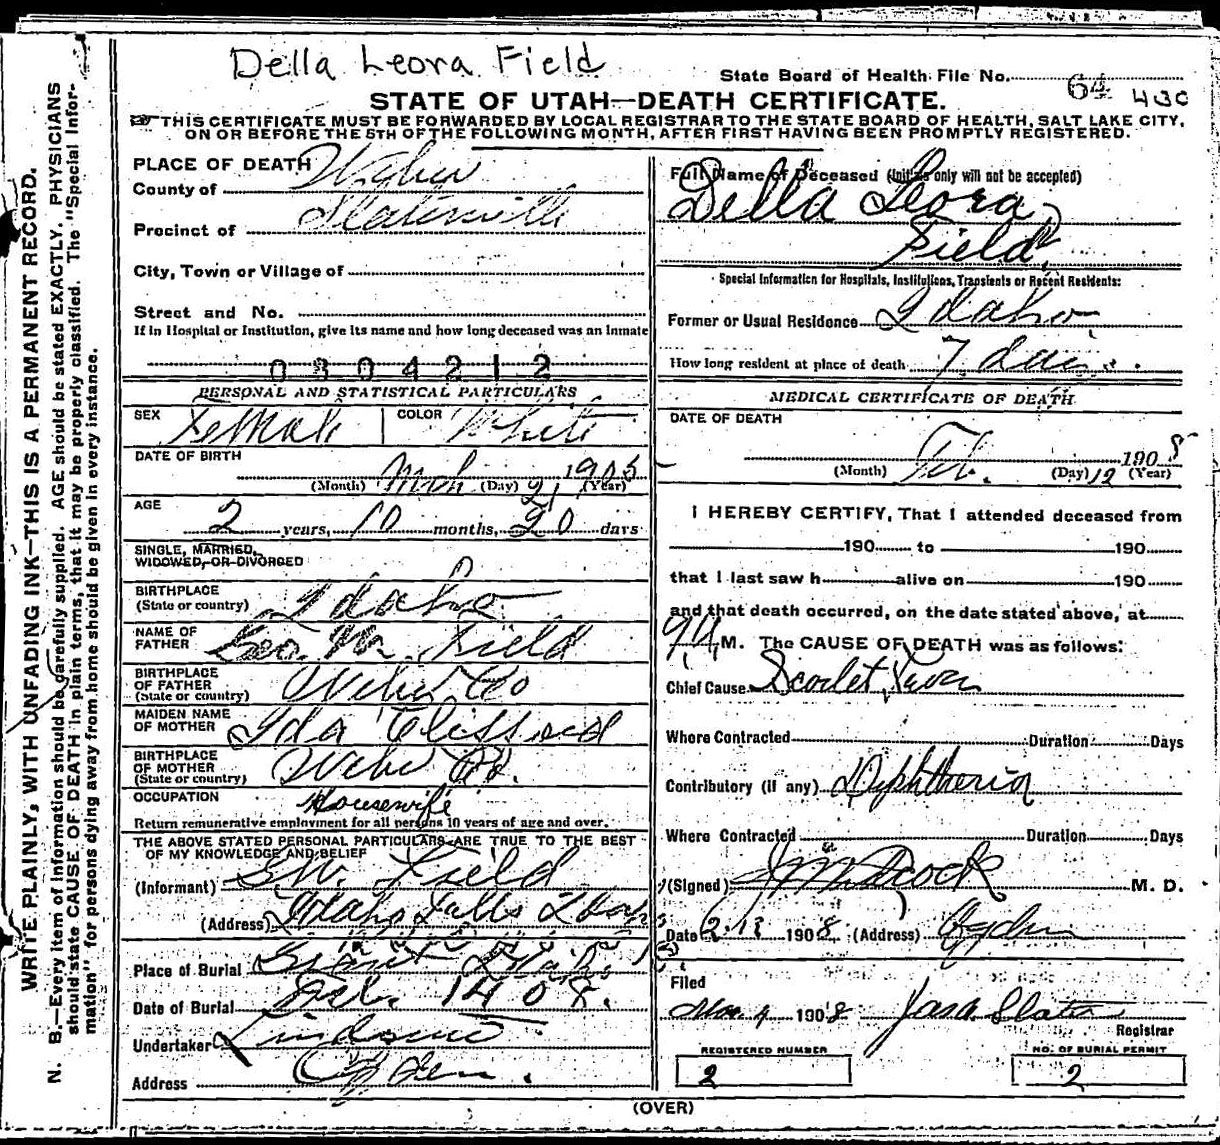 Della Leora Field
State Board of Health File No. 64 430
STATE OF UTAH—DEATH CERTIFICATE.
THIS CERTIFICATE MUST BE FORWARDED BY LOCAL REGISTRAR TO THE STATE BOARD OF HEALTH, SALT LAKE CITY,
ON OR BEFORE THE 5TH OF THE FOLLOWING MONTH, AFTER FIRST HAVING BEEN PROMPTLY REGISTERED.
WRITE PLAINLY, WITH UNFADING INK—THIS IS A PERMANENT RECORD.
N. B.—Every item of information should be carefully supplied. AGE should be stated EXACTLY. PHYSICIANS
should state CAUSE OF DEATH in plain terms, that it may be properly classified. The "Special Infor-
mation" for persons dying away from home should be given in every instance.
PLACE OF DEATH
County of Weber
Precinct of Slaterville
City, Town or Village of
Street and No.
If in Hospital or Institution, give its name and how long deceased was an inmate
0304212
PERSONAL AND STATISTICAL PARTICULARS
SEX Female COLOR White
DATE OF BIRTH
Mch 21 1905
(Month) (Day) (Year)
AGE
2 years, 10 months, 20 days
SINGLE, MARRIED,
WIDOWED, OR DIVORCED
BIRTHPLACE
(State or country) Idaho
NAME OF
FATHER Geo. W. Field
BIRTHPLACE
OF FATHER
(State or country) Weber Co
MAIDEN NAME
OF MOTHER Ida Clissold
BIRTHPLACE
OF MOTHER
(State or country) Weber Co.
OCCUPATION Housewife
Return remunerative employment for all persons 10 years of age and over.
THE ABOVE STATED PERSONAL PARTICULARS ARE TRUE TO THE BEST
OF MY KNOWLEDGE AND BELIEF
(Informant) G.W. Field
(Address) Idaho Falls Idaho
Place of Burial
Date of Burial Feb. 14 08.
Undertaker
Address Ogden.
Full Name of Deceased (Initials only will not be accepted)
Della Leora
Field
Special Information for Hospitals, Institutions, Transients or Recent Residents:
Former or Usual Residence Idaho
How long resident at place of death 7 days
MEDICAL CERTIFICATE OF DEATH
DATE OF DEATH
Feb. 12 1908
(Month) (Day) (Year)
I HEREBY CERTIFY, That I attended deceased from
190 to 190
that I last saw h alive on 190
and that death occurred, on the date stated above, at
M. The CAUSE OF DEATH was as follows:
Chief Cause Scarlet Fever
Where Contracted Duration Days
Contributory (if any) Diphtheria
Where Contracted Duration Days
(Signed) M. D.
Date 2.13 1908 (Address) Ogden
Filed
Mar 4 1908 Jas A. Slater
Registrar
REGISTERED NUMBER
2
NO. OF BURIAL PERMIT
2
(OVER)